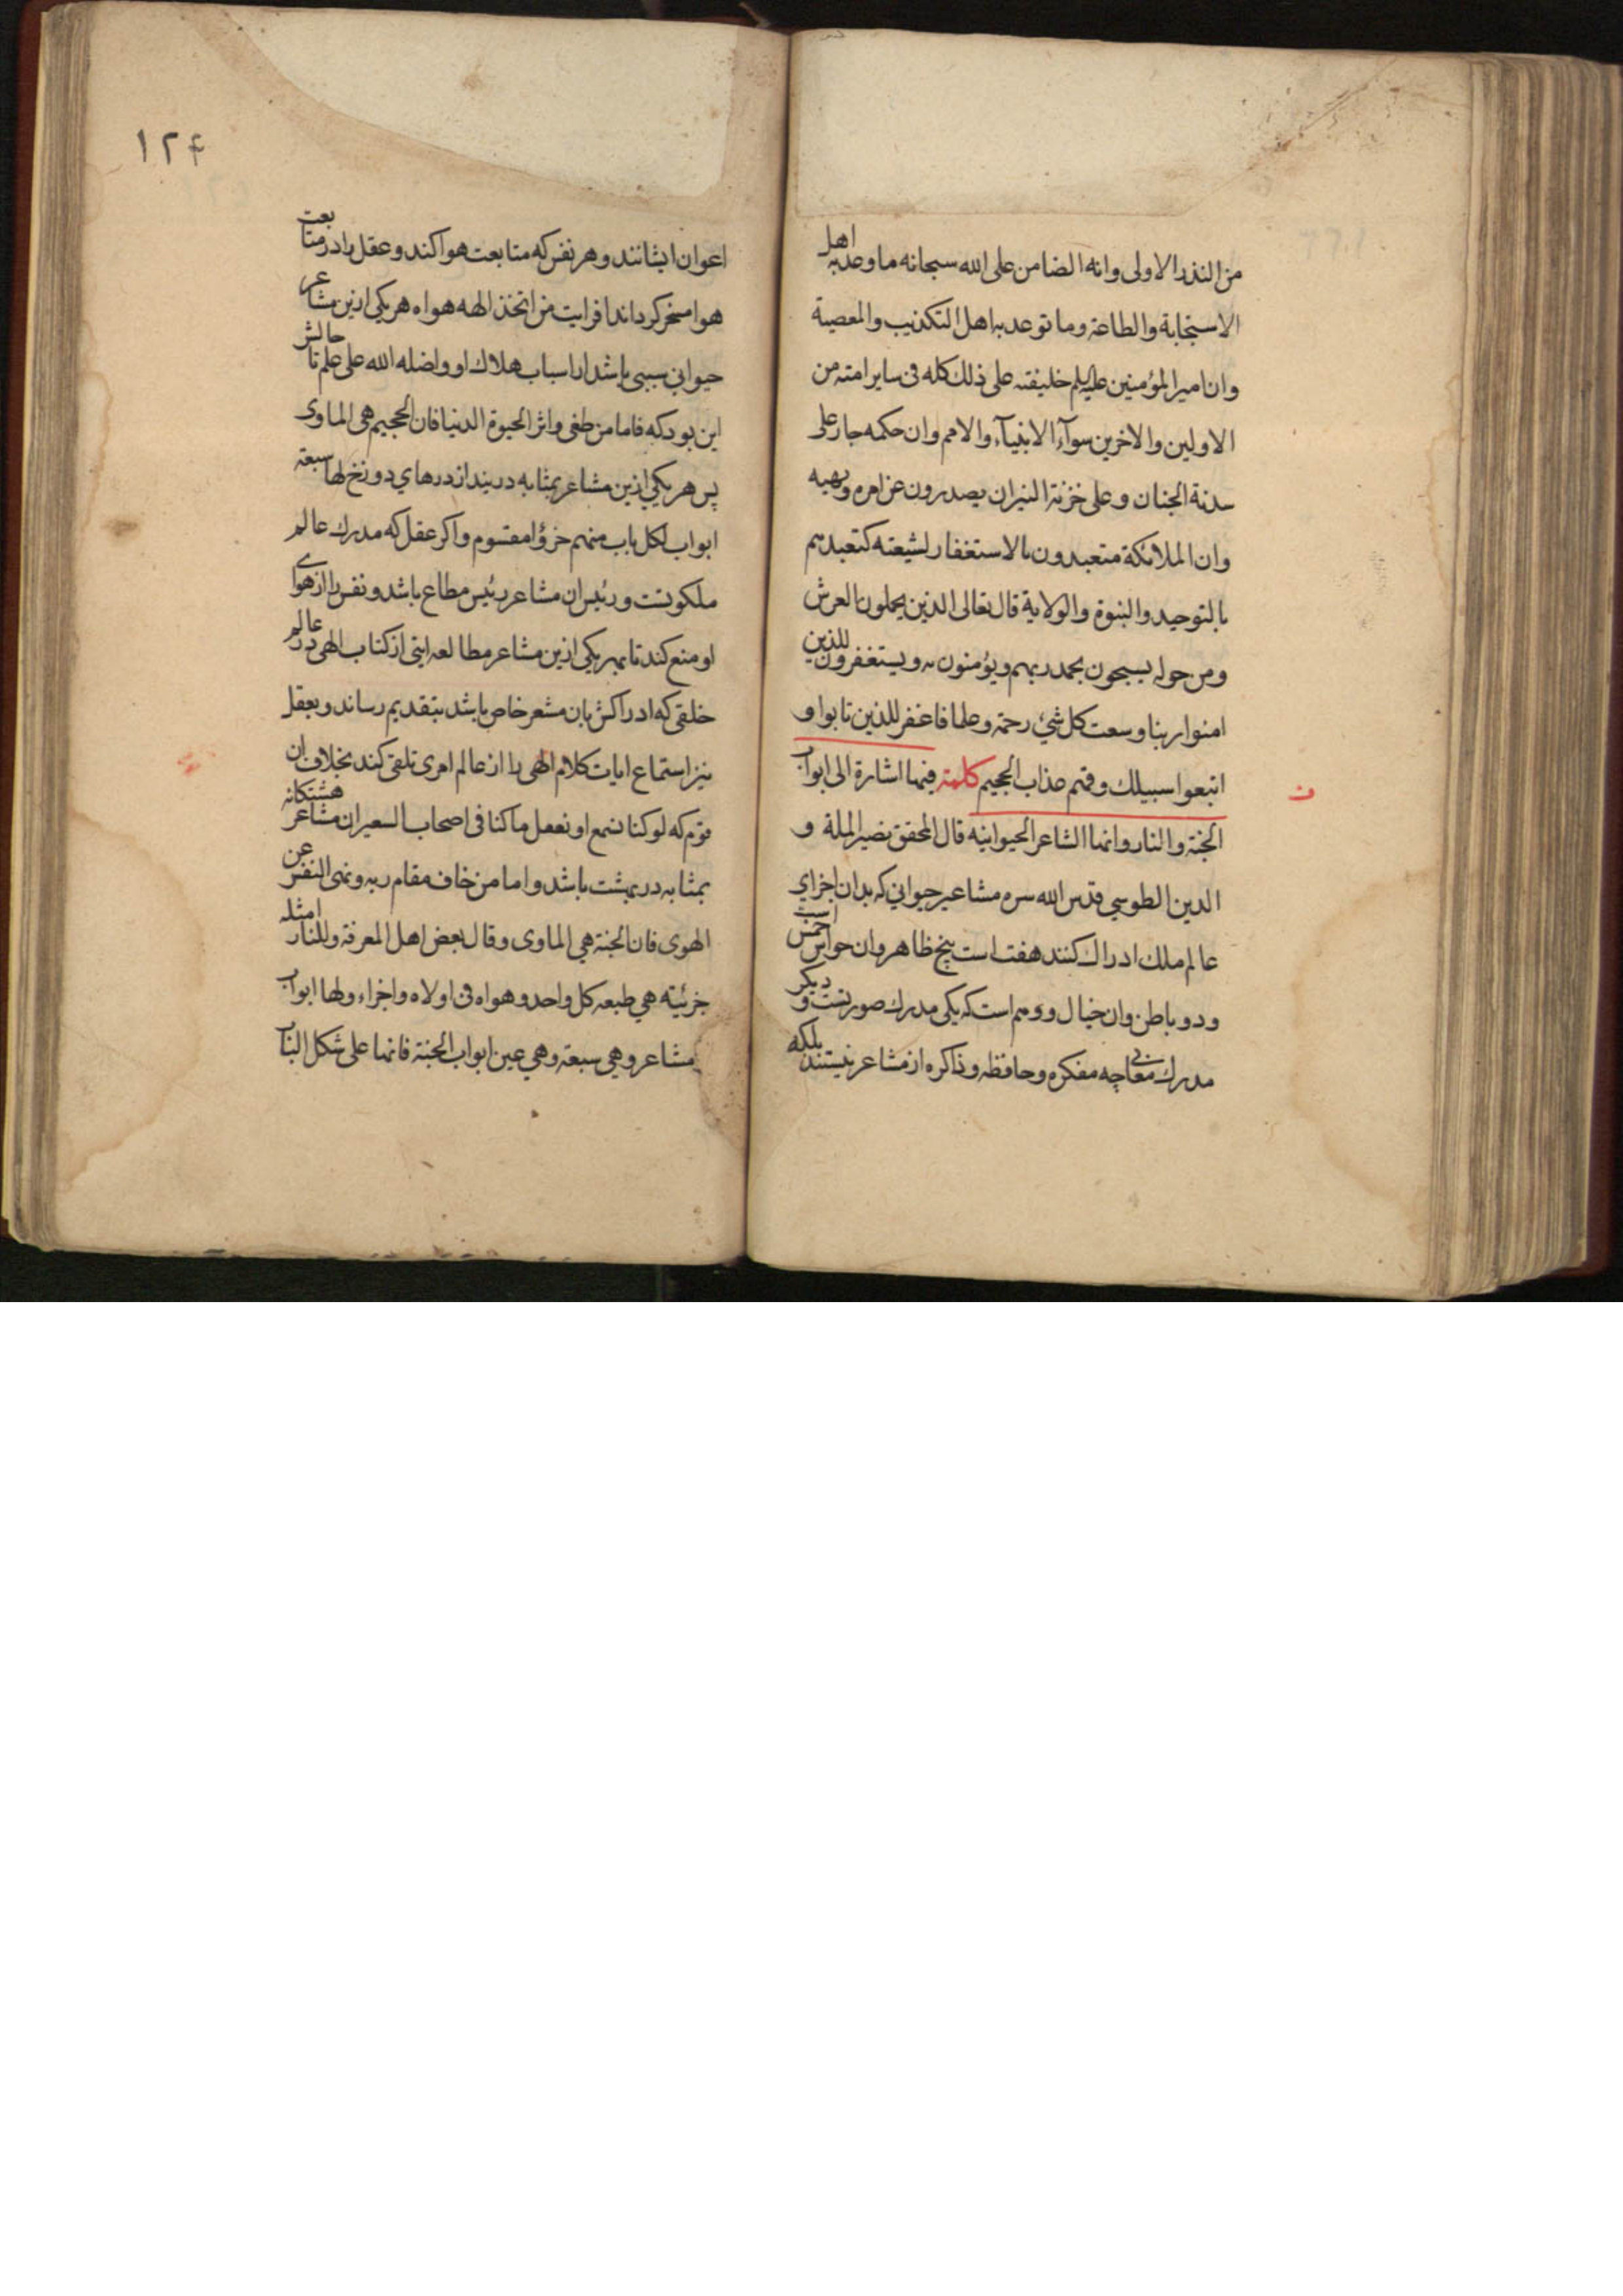 من النذر الاولى وانه الضامن على الله سبحانه ما وعد به اهل
الاستجابة والطاعة وما توعد به اهل التكذيب والمعصية
وان امير المؤمنين عليه السلم خليفته على ذلك كله فى ساير امته من
الاولين والاخرين سوآء الانبيآء والامم وان حكمه جار على
سدنة الجنان وعلى خزنة النيران يصدرون عن امره ونهيه
وان الملائكة متعبدون بالاستغفار لشيعته كتعبدهم
بالتوحيد والنبوة والولاية قال تعالى الذين يحملون العرش
ومن حوله يسبحون بحمد ربهم ويؤمنون به ويستغفرون للذين
امنوا ربنا وسعت كل شئ رحمة وعلما فاغفر للذين تابوا و
اتبعوا سبيلك وقهم عذاب الجحيم كلمة فيها اشارة الى ابواب
ن
الجنة والنار وانها المشاعر الحيوانيه قال المحقق نصير الملة و
الدين الطوسي قدس الله سره مشاعير حيواني كه بدان اجزاي
عالم ملك ادراك كنند هفت است پنج ظاهر وان حواس خمس است
ودو باطن وان خيال ووهم است كه يكى مدرك صورتست و ديكر
مدرك معاني چه مفكره وحافظه وذاكره از مشاعر نيستند بلكه
۱۲۴
اعوان ايشانند وهر نفس كه متابعت هوا كند وعقل را در متابعت
هوا مسخر كرداند افرايت من اتخذ الهه هواه هر يكى ازين مشاعر
حيواني سببى باشد از اسباب هلاك او واضله الله على علم تا حالش
اين بود كه فاما من طغى واثر الحيوة الدنيا فان الجحيم هى الماوى
پس هر يكي ازين مشاعر بمثابه دريند از درهاي دوزخ لها سبعة
ابواب لكل باب منهم جزؤ مقسوم واكر عقل كه مدرك عالم
ملكوتست ورئيس ان مشاعر رئيس مطاع باشد ونفس را از هواى
او منع كند تا بهر يكى ازين مشاعر مطالعه ايتى از كتاب الهى در عالم
خلقى كه ادراكش بان مشعر خاص باشد بتقديم رساند وبعقل
نيز استماع ايات كلام الهى را از عالم امرى تلقى كند بخلاف ان
قوم كه لو كنا نسمع او نعقل ما كنا فى اصحاب السعير ان مشاعر هشتكانه
بمثابه در بهشت باشد واما من خاف مقام ربه ونهى النفس عن
الهوى فان الجنة هي الماوى وقال بعض اهل المعرفة وللنار امثله
جزئيته هي طبعه كل واحد وهواه فى اولاه واخراه ولها ابواب
مشاعر وهي سبعة وهي عين ابواب الجنة فانها على شكل الباب